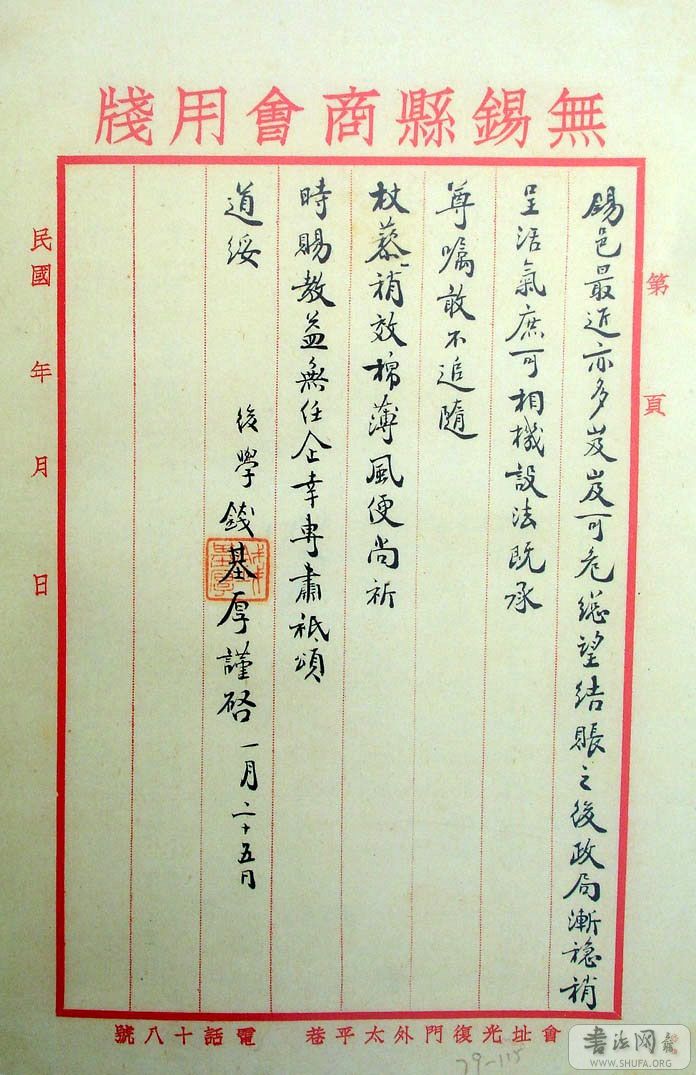 無錫縣商會用牋
第 頁
錫邑最近亦多岌岌可危總望結賬之後政局漸穩稍
呈活氣庶可相機設法既承
尊囑敢不追隨
杖藜稍效棉薄風便尚祈
時賜教益無任企幸專肅祇頌
道綏
後學錢基厚謹啓 一月二十五日
民國 年 月 日
會址光復門外太平巷 電話十八號
79-115
書法网
WWW.SHUFA.ORG